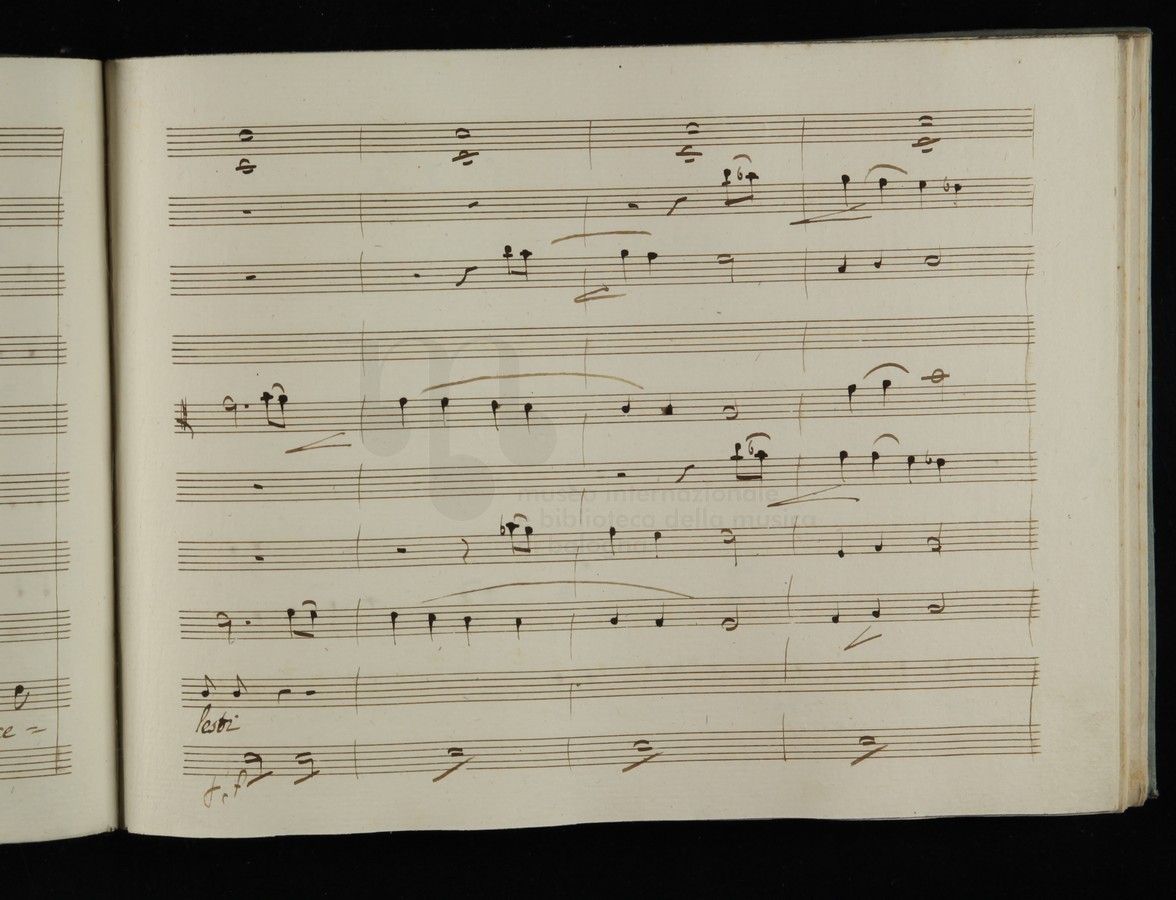 museo internazionale
biblioteca della musica
bologna
ce =
lesti
f.f